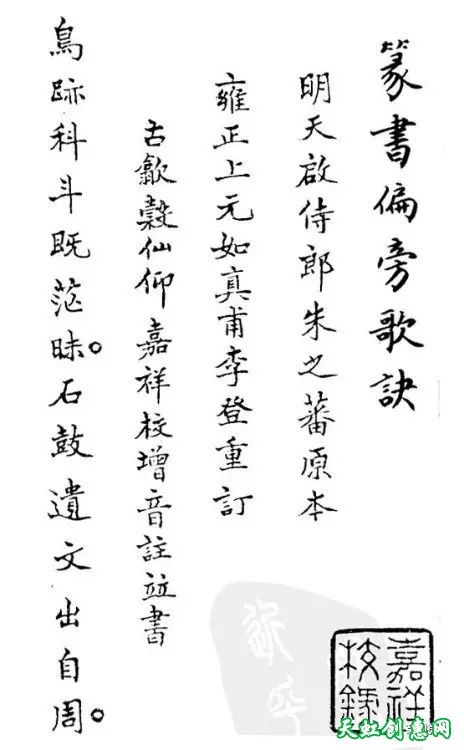 篆書偏旁歌訣
明天啟侍郎朱之蕃原本
雍正上元如真甫李登重訂
古歙穀仙仰嘉祥校增音註竝書
鳥跡科斗既茫昧。石鼓遺文出自周。
嘉祥校錄
天虹创意网